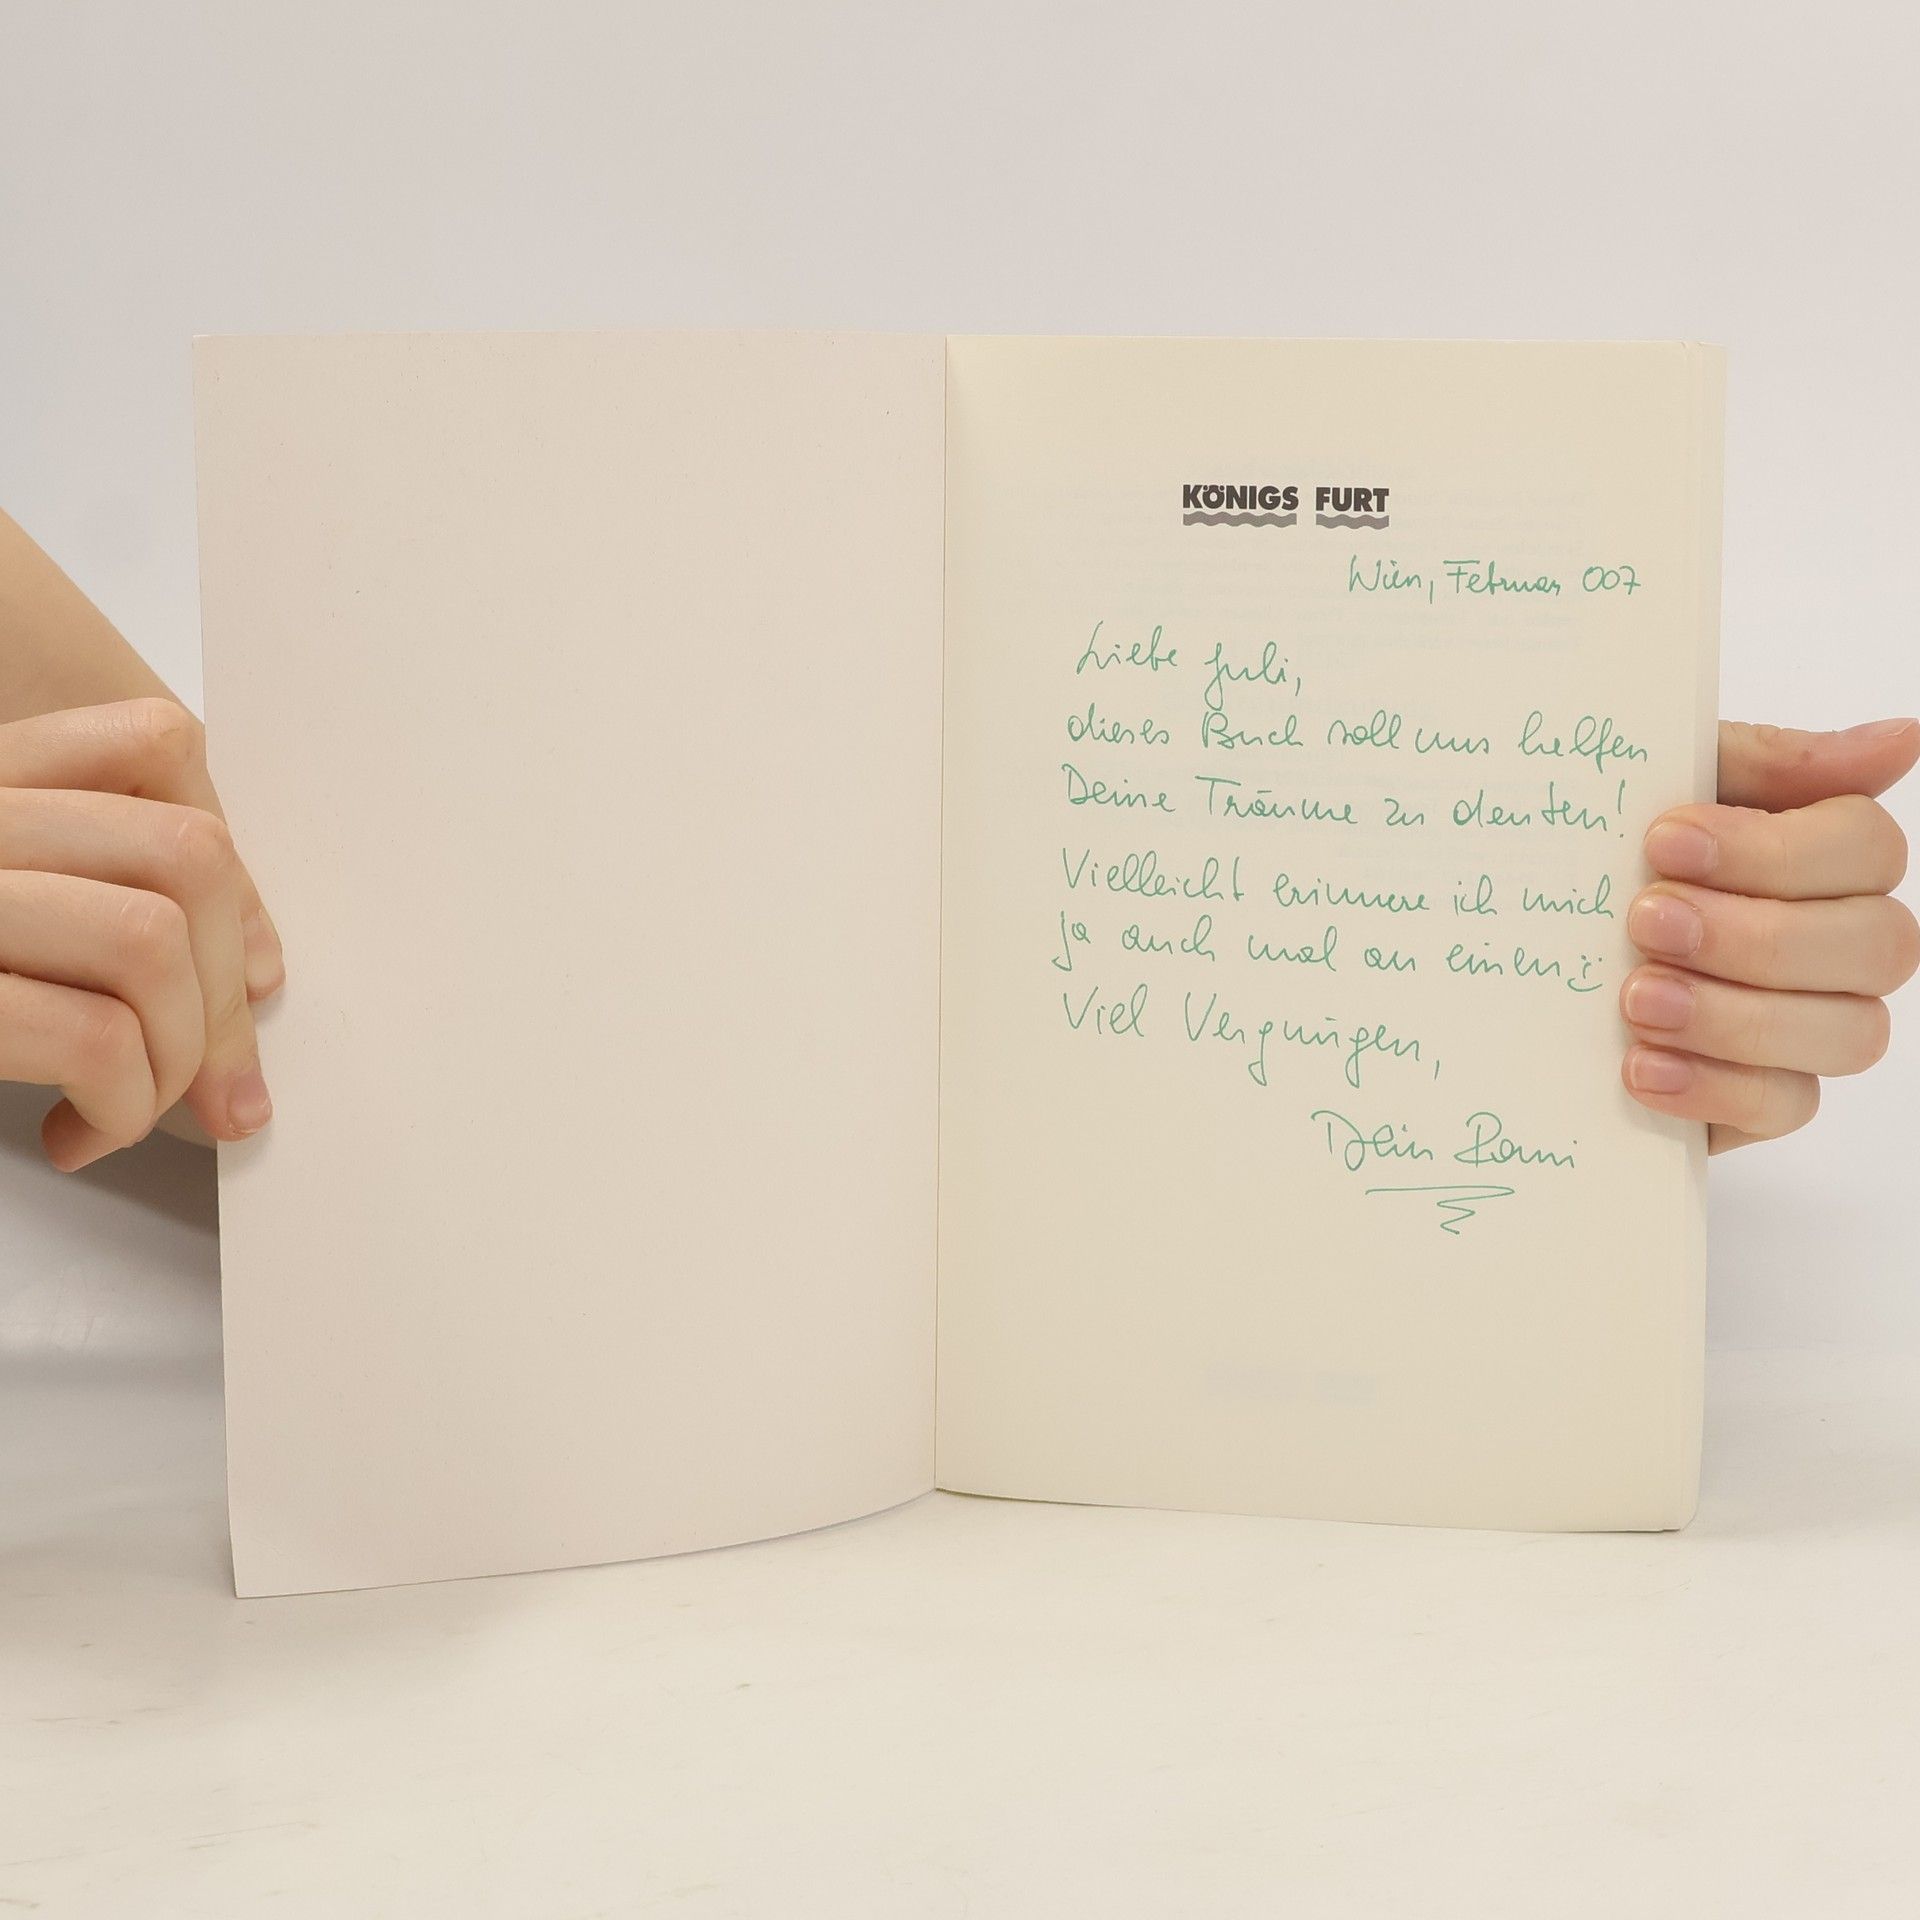 KÖNIGS FURT
Wien, Februar 007
Liebe Juli,
dieses Buch soll uns helfen
Deine Träume zu deuten!
Vielleicht erinnere ich mich
ja auch mal an einen :)
Viel Vergnügen,
Dein Romi